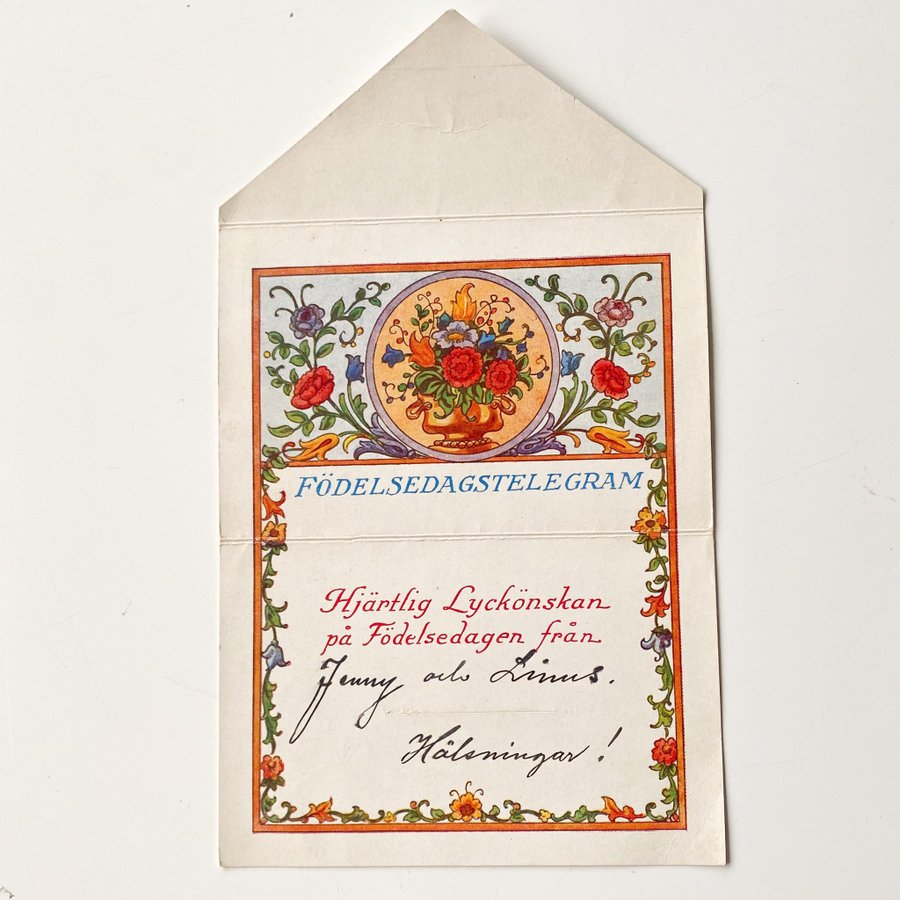 FÖDELSEDAGSTELEGRAM
Hjärtlig Lyckönskan
på Födelsedagen från
Jenny och Linus.
Hälsningar!